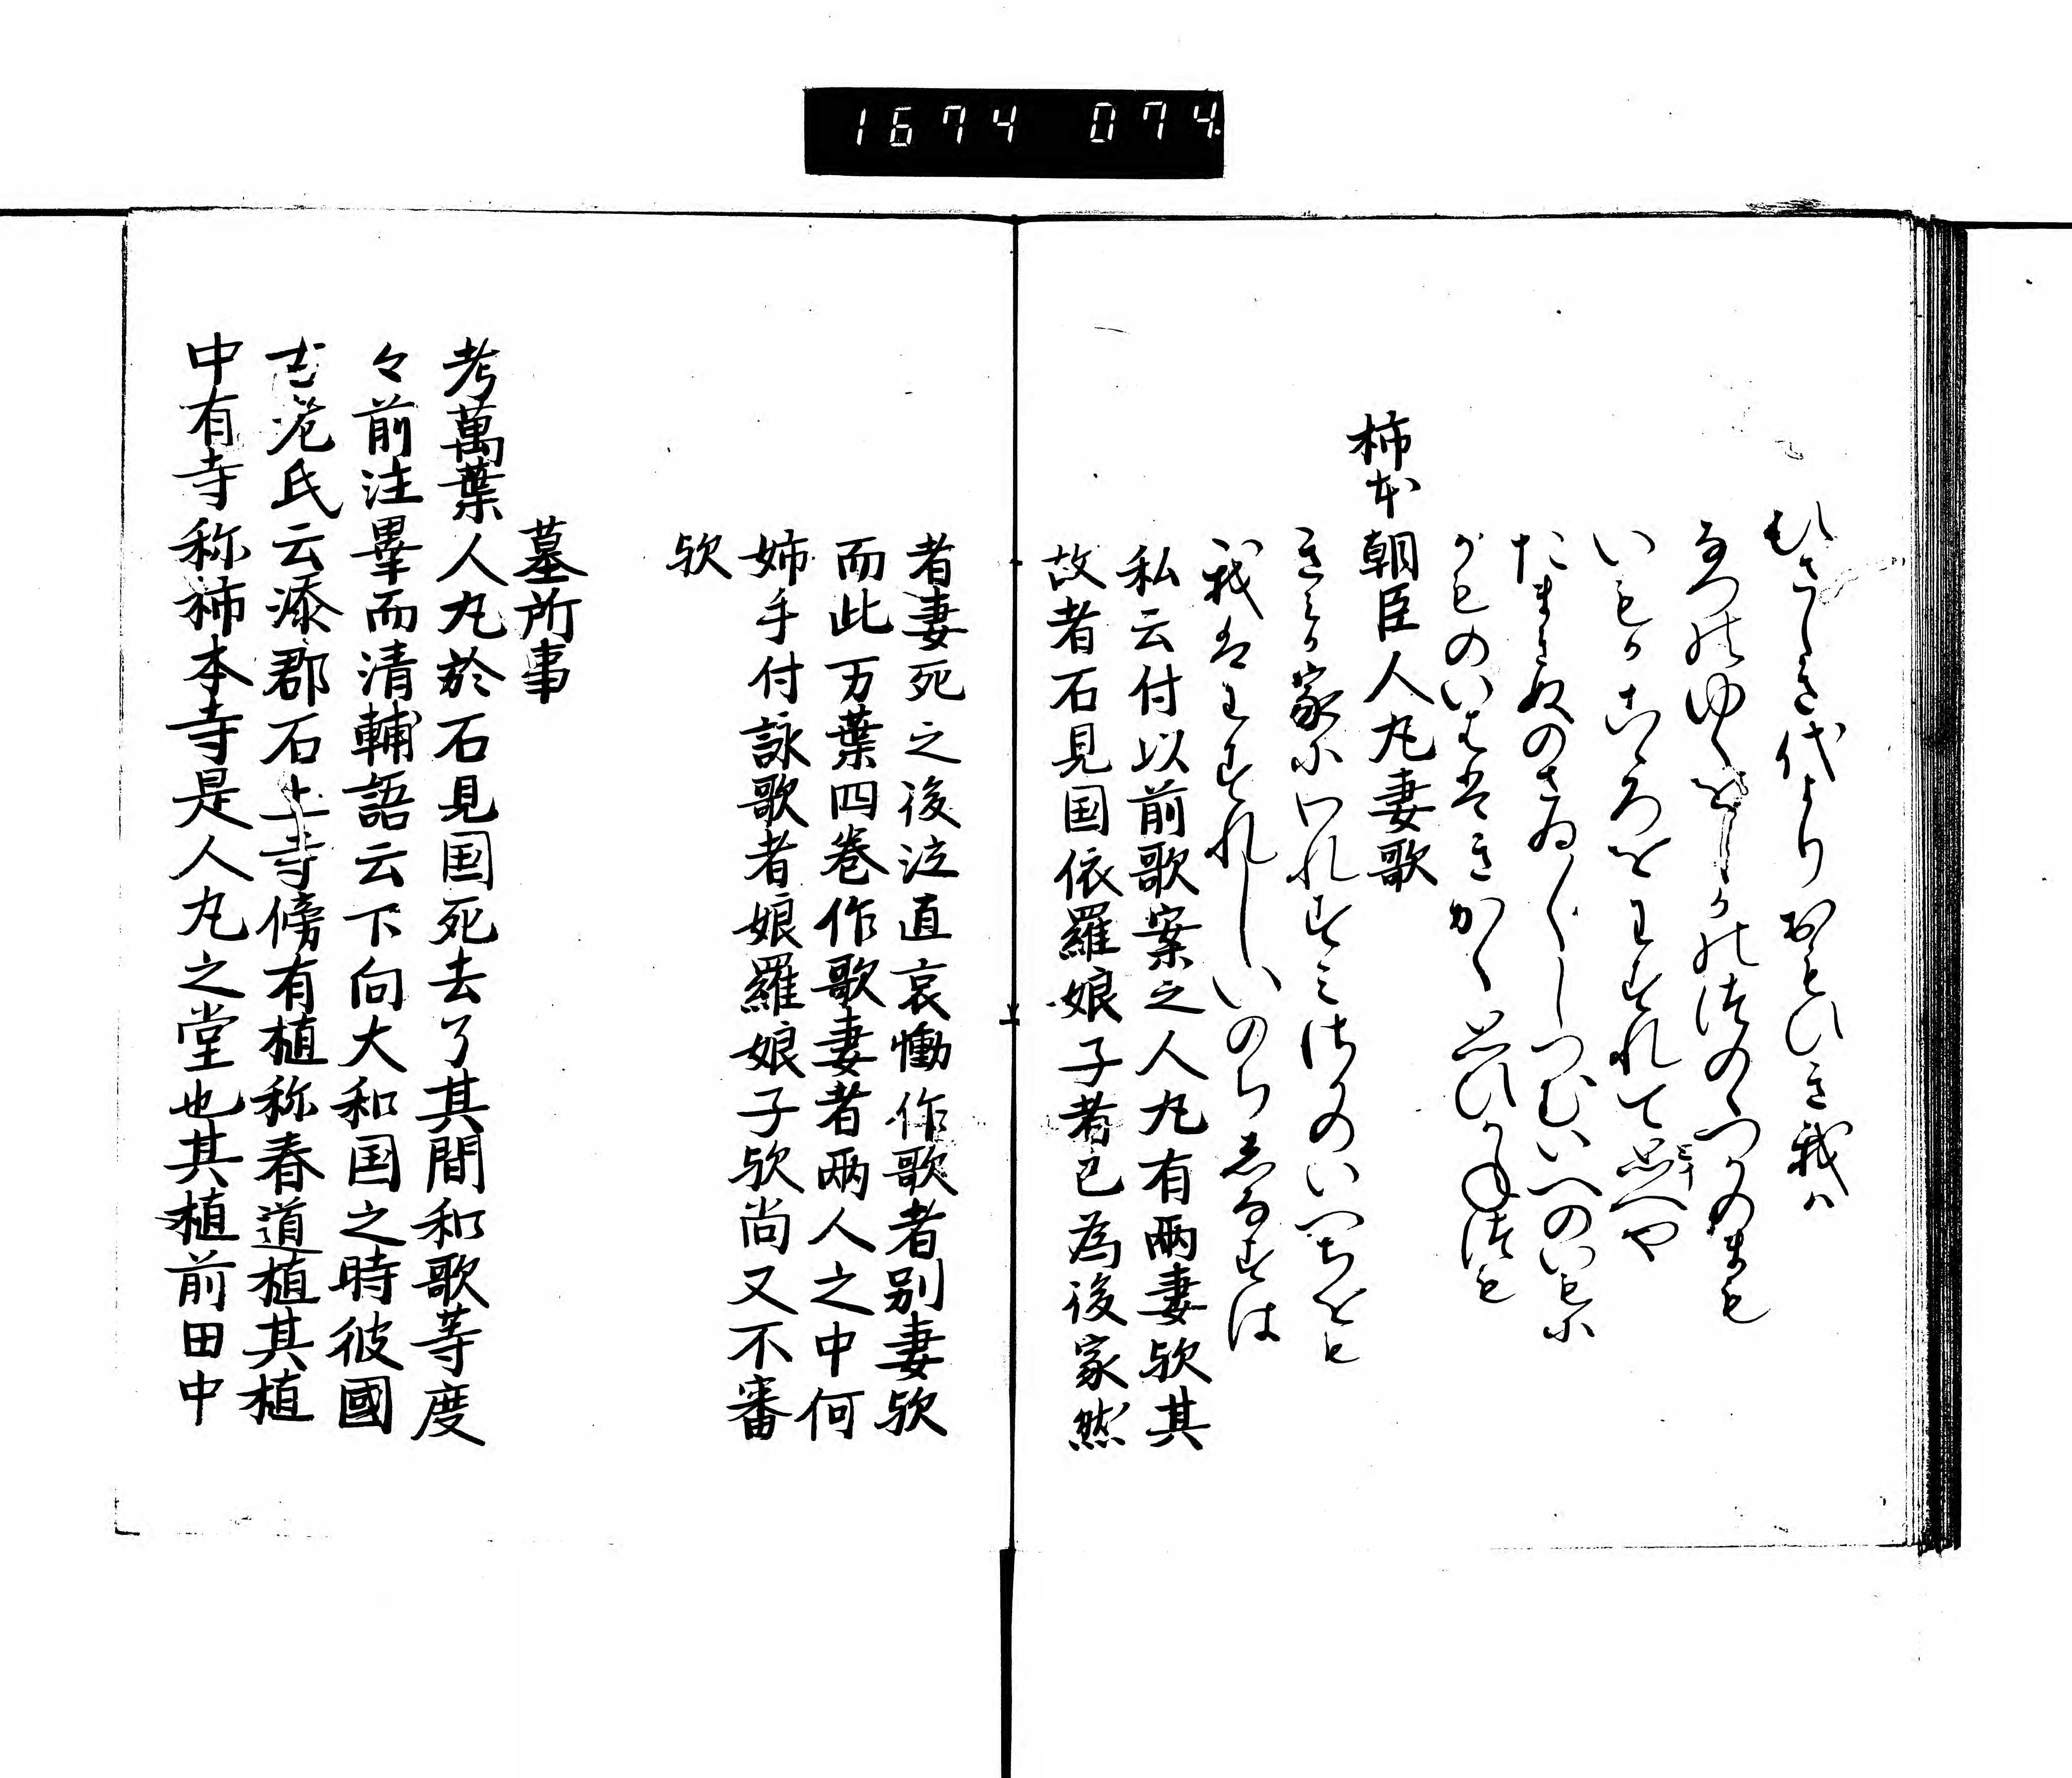 1674 074
ひさしき代よりおもひき我は
なつのゆくをしかのつのゝつかのまも
いもかこゝろをわすれて思へや
たまきぬのさゐ〳〵しつむいへのいもに
かものいはすきかく思ひかねつも
柿本朝臣人丸妻歌
きみか家にわれすみさかのいへちをも
我はわすれしいのちしなすは
私云付以前歌案之人丸有両妻歟其
故者石見国依羅娘子者已為後家然
者妻死之後泣直哀慟作歌者別妻歟
而此万葉四巻作歌妻者両人之中何
姉手付詠歌者娘羅娘子歟尚又不審
歟
墓所事
考萬葉人丸於石見国死去了其間和歌等度
々前注畢而清輔語云下向大和国之時彼國
古老氏云添郡石上寺傍有植称春道植其植
中有寺称柿本寺是人丸之堂也其植前田中